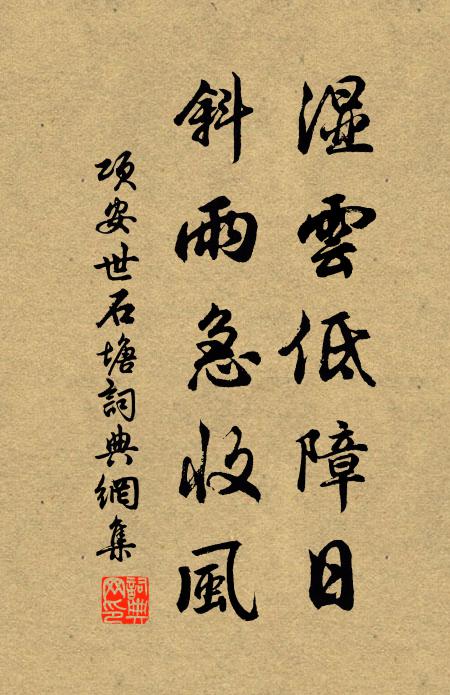 湿雲低障日
斜雨急收風
項安世石塘詞典網集
詞典网印